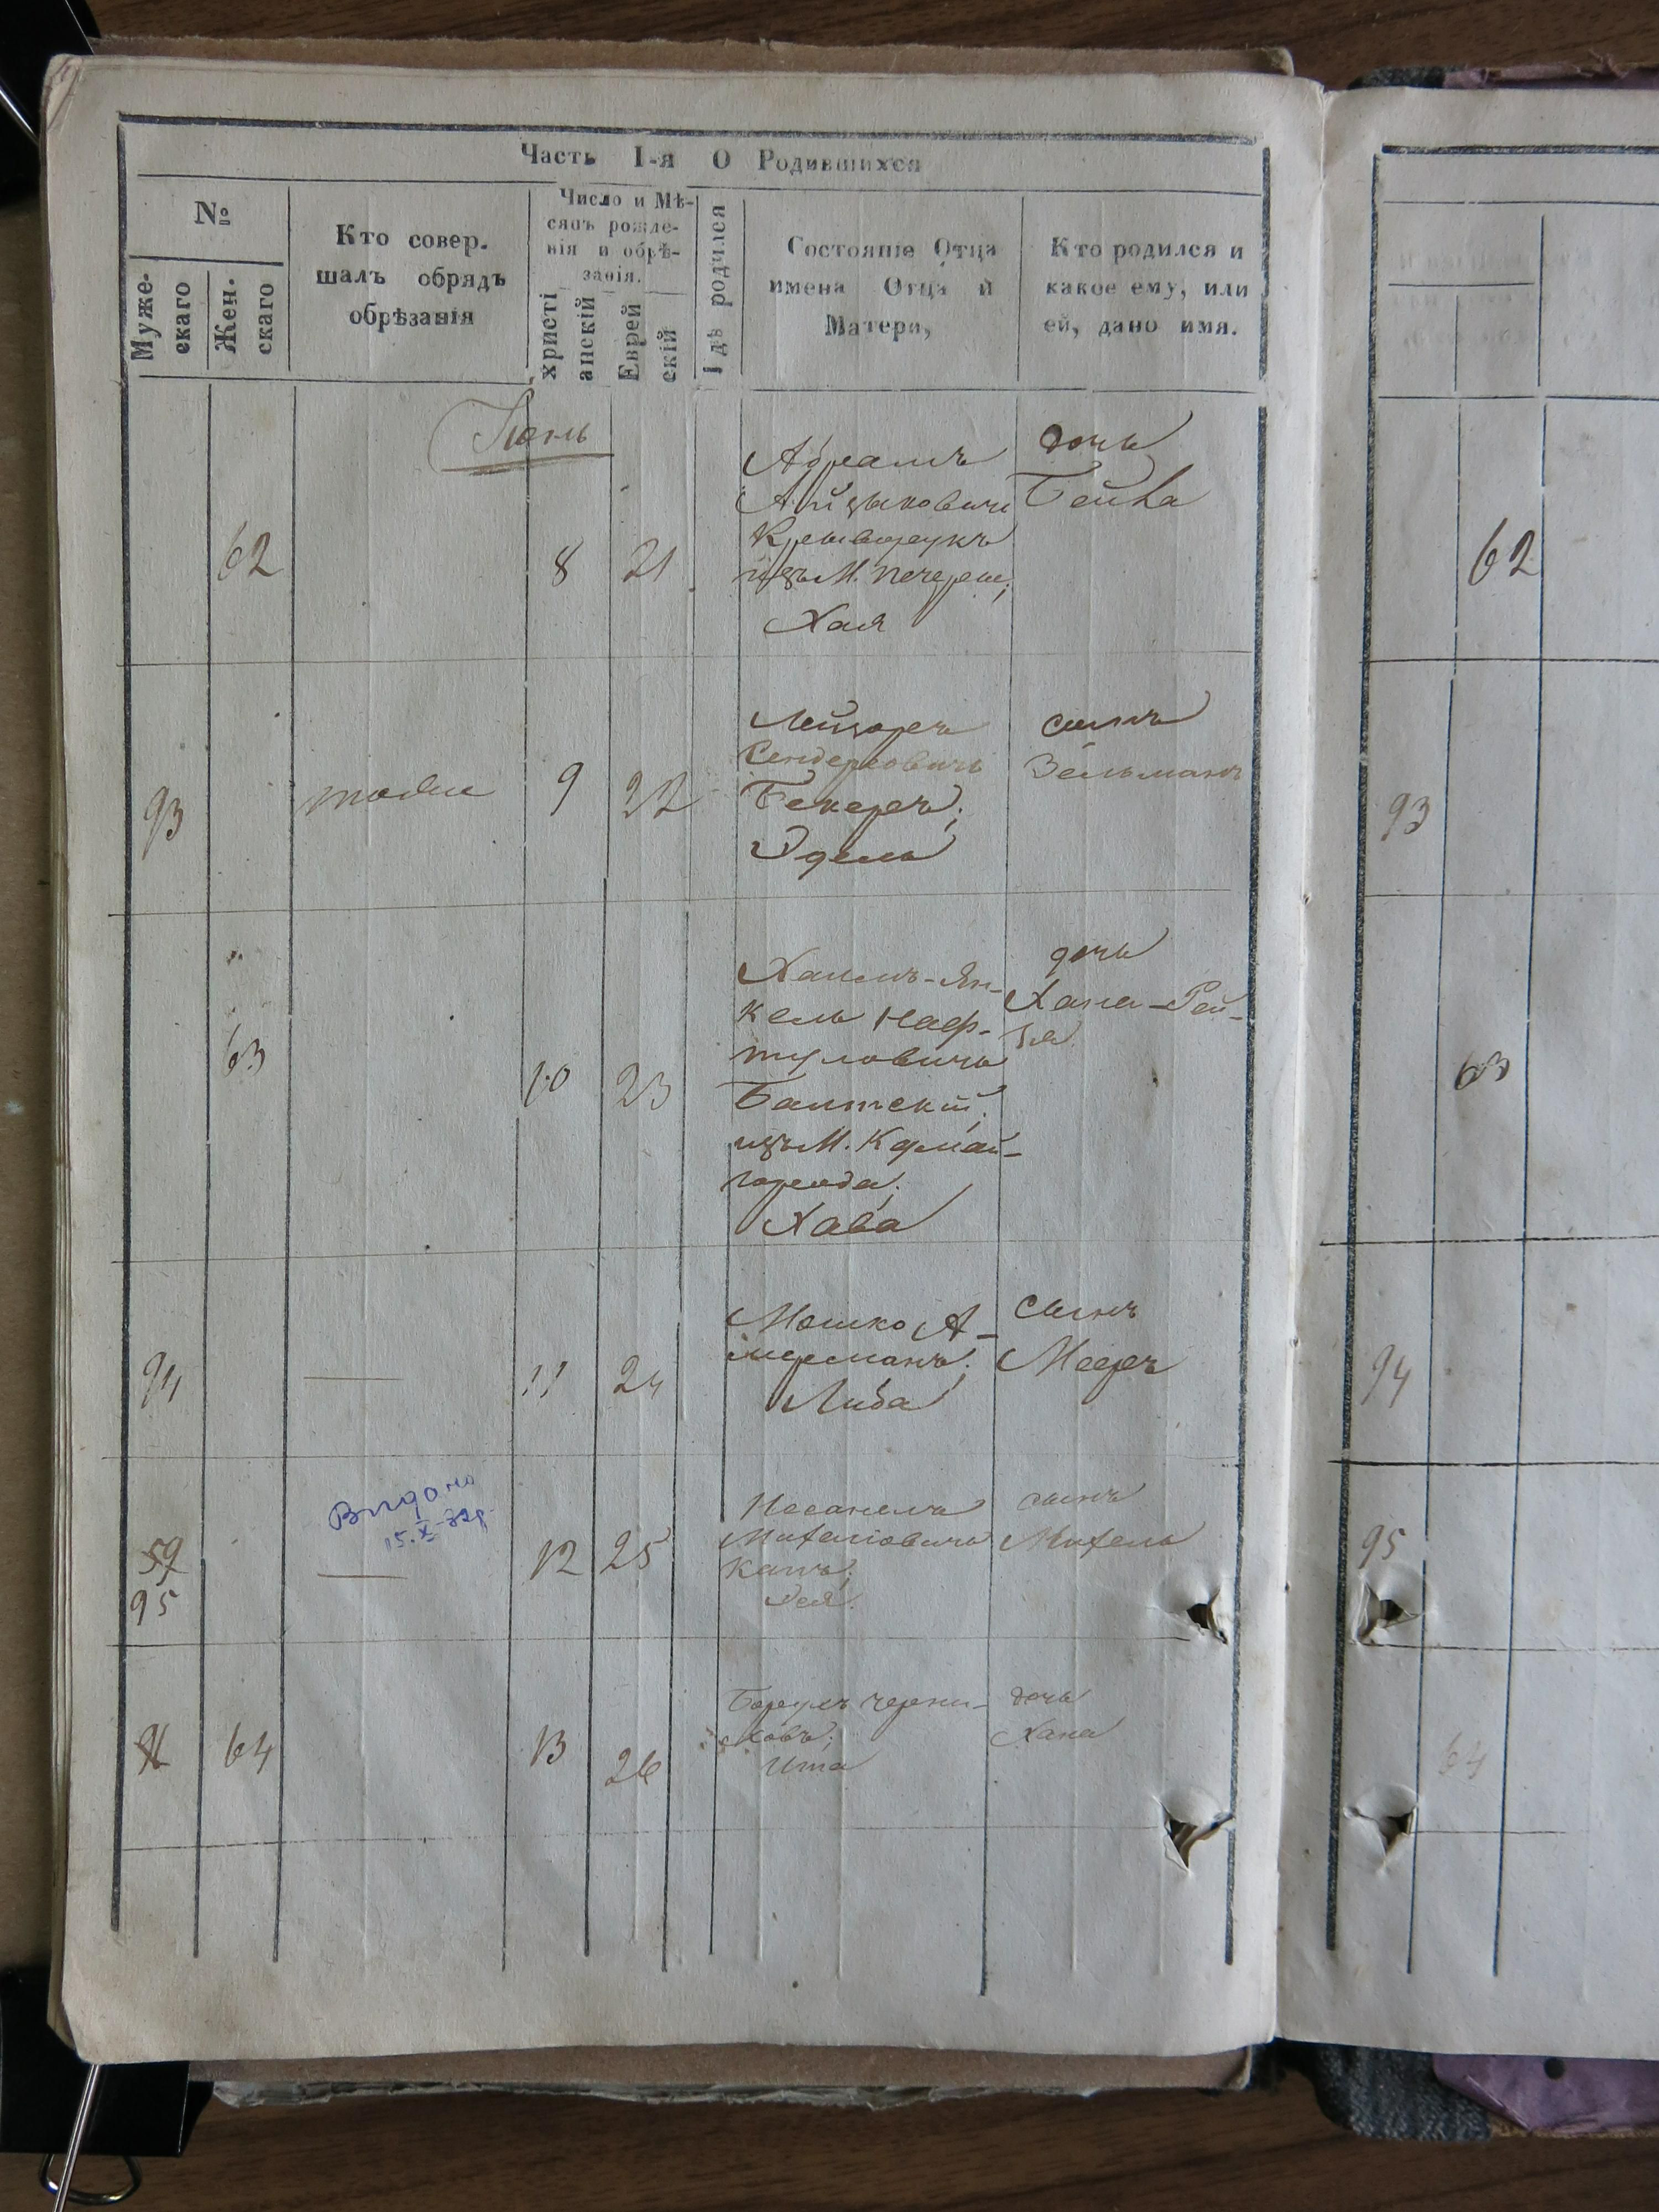 Часть I-я О Родившихся
№
Муже-
скаго
Жен.
скаго
Кто совер-
шалъ обрядъ
обрѣзанія
Число и Мѣ-
сяцъ рожде-
нія и обрѣ-
занія.
христі
анскій
Еврей
скій
Гдѣ родился
Состояніе Отца
имена Отца и
Матери,
Кто родился и
какое ему, или
ей, дано имя.
Іюнь
62
8
21
Абрамъ
Айзыковичъ
изъ М.
Хая
дочь
Бейла
62
93
тоже
9
22
Лейзоръ
Сендеровичъ
Бекеръ;
Эдель
сынъ
Зельманъ
93
63
10
23
Хаимъ-Ян-
кель Наф-
туловичъ
Балтскій,
изъ М. Копай-
города;
Хава
дочь
Хана-Рей-
зя
63
94
11
24
Мошко А-
Либа
сынъ
Мееръ
94
Видано
15.X-32р.
59
95
12
25
Михелевичъ
Кацъ;
сынъ
Михель
95
64
13
26
Борухъ Черни-
ховъ;
Ита
дочь
Хана
64